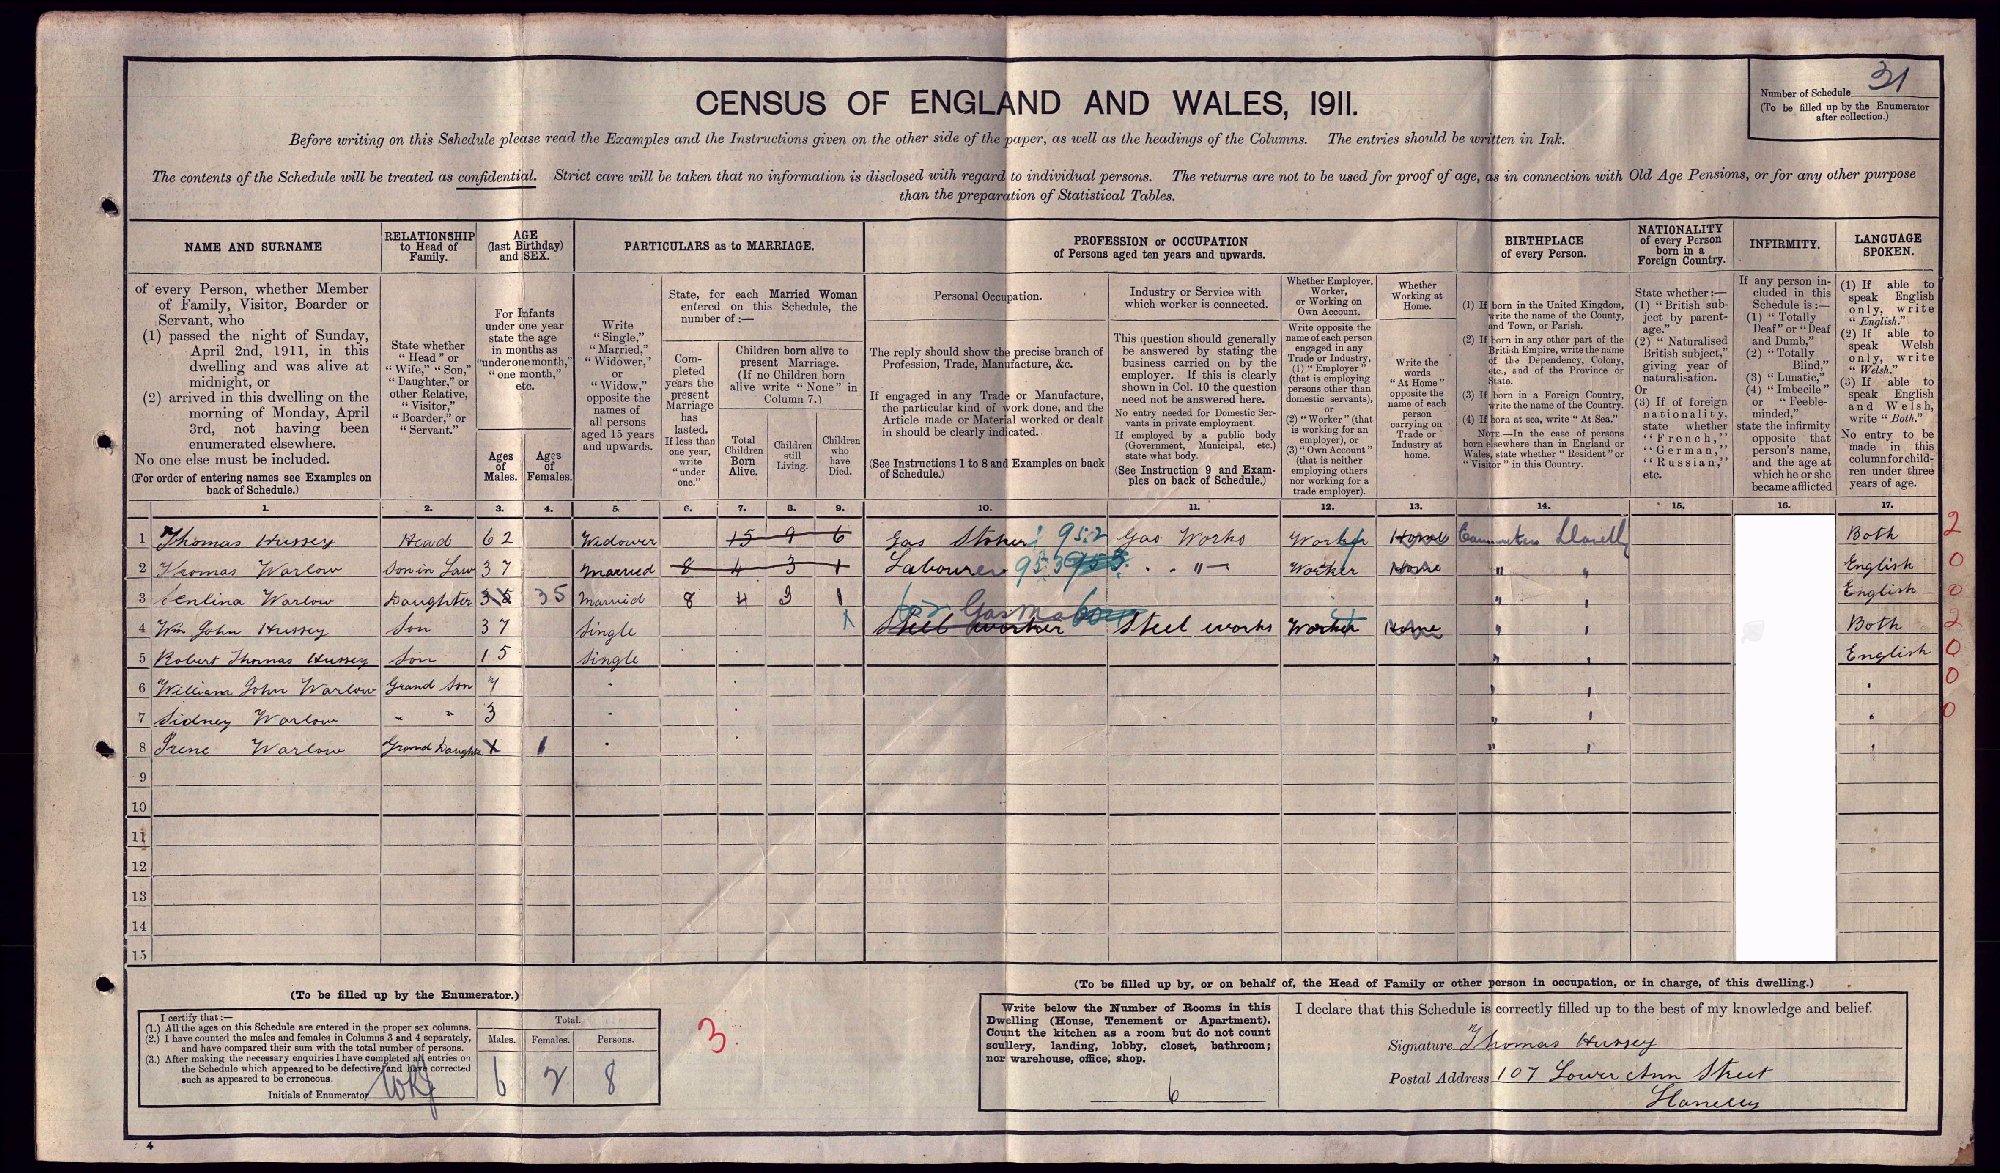 Number of Schedule 31
(To be filled up by the Enumerator
after collection.)
CENSUS OF ENGLAND AND WALES, 1911.
Before writing on this Schedule please read the Examples and the Instructions given on the other side of the paper, as well as the headings of the Columns. The entries should be written in Ink.
The contents of the Schedule will be treated as confidential. Strict care will be taken that no information is disclosed with regard to individual persons. The returns are not to be used for proof of age, as in connection with Old Age Pensions, or for any other purpose
than the preparation of Statistical Tables.
NAME AND SURNAME
of every Person, whether Member
of Family, Visitor, Boarder or
Servant, who
(1) passed the night of Sunday,
April 2nd, 1911, in this
dwelling and was alive at
midnight, or
(2) arrived in this dwelling on the
morning of Monday, April
3rd, not having been
enumerated elsewhere.
No one else must be included.
(For order of entering names see Examples on
back of Schedule.)
RELATIONSHIP
to Head of
Family.
State whether
"Head" or
"Wife," "Son,"
"Daughter," or
other Relative,
"Visitor,"
"Boarder," or
"Servant."
AGE
(last Birthday)
and SEX.
For Infants
under one year
state the age
in months as
"under one month,"
"one month,"
etc.
Ages
of
Males.
Ages
of
Females.
PARTICULARS as to MARRIAGE.
Write
"Single,"
"Married,"
"Widower,"
or
"Widow,"
opposite the
names of
all persons
aged 15 years
and upwards.
State, for each Married Woman
entered on this Schedule, the
number of :—
Com-
pleted
years the
present
Marriage
has
lasted.
If less than
one year,
write
"under
one."
Children born alive to
present Marriage.
(If no Children born
alive write "None" in
Column 7.)
Total
Children
Born
Alive.
Children
still
Living.
Children
who
have
Died.
PROFESSION or OCCUPATION
of Persons aged ten years and upwards.
Personal Occupation.
The reply should show the precise branch of
Profession, Trade, Manufacture, &c.
If engaged in any Trade or Manufacture,
the particular kind of work done, and the
Article made or Material worked or dealt
in should be clearly indicated.
(See Instructions 1 to 8 and Examples on back
of Schedule.)
Industry or Service with
which worker is connected.
This question should generally
be answered by stating the
business carried on by the
employer. If this is clearly
shown in Col. 10 the question
need not be answered here.
No entry needed for Domestic Ser-
vants in private employment.
If employed by a public body
(Government, Municipal, etc.)
state what body.
(See Instruction 9 and Exam-
ples on back of Schedule.)
Whether Employer,
Worker,
or Working on
Own Account.
Write opposite the
name of each person
engaged in any
Trade or Industry,
(1) "Employer"
(that is employing
persons other than
domestic servants),
or
(2) "Worker" (that
is working for an
employer), or
(3) "Own Account"
(that is neither
employing others
nor working for a
trade employer).
Whether
Working at
Home.
Write the
words
"At Home"
opposite the
name of each
person
carrying on
Trade or
Industry at
home.
BIRTHPLACE
of every Person.
(1) If born in the United Kingdom,
write the name of the County,
and Town, or Parish.
(2) If born in any other part of the
British Empire, write the name
of the Dependency, Colony,
etc., and of the Province or
State.
(3) If born in a Foreign Country,
write the name of the Country.
(4) If born at sea, write "At Sea."
NOTE.—In the case of persons
born elsewhere than in England or
Wales, state whether "Resident" or
"Visitor" in this Country.
NATIONALITY
of every Person
born in a
Foreign Country.
State whether :—
(1) "British sub-
ject by parent-
age."
(2) "Naturalised
British subject,"
giving year of
naturalisation.
Or
(3) If of foreign
nationality,
state whether
"French,"
"German,"
"Russian,"
etc.
INFIRMITY.
If any person in-
cluded in this
Schedule is :—
(1) "Totally
Deaf" or "Deaf
and Dumb,"
(2) "Totally
Blind,"
(3) "Lunatic,"
(4) "Imbecile"
or "Feeble-
minded,"
state the infirmity
opposite that
person's name,
and the age at
which he or she
became afflicted
LANGUAGE
SPOKEN.
(1) If able to
speak English
only, write
"English."
(2) If able to
speak Welsh
only, write
"Welsh."
(3) If able to
speak English
and Welsh,
write "Both."
No entry to be
made in this
column for child-
ren under three
years of age.
1. 2. 3. 4. 5. 6. 7. 8. 9. 10. 11. 12. 13. 14. 15. 16. 17.
1 Thomas Hussey Head 62 Widower 15 9 6 Gas Stoker 952 Gas Works Worker Home Llanelly Both 2
2 Thomas Warlow Son in Law 37 Married 8 4 3 1 Labourer 953 " Worker Home " " English 0
3 Senlina Warlow Daughter 35 35 Married 8 4 3 1 " " English 0
4 Wm John Hussey Son 37 Single Steel worker Steel works Worker Home " " Both 2
5 Robert Thomas Hussey Son 15 Single " " English 0
6 William John Warlow Grand Son 7 " " " 0
7 Sidney Warlow " " 3 " " " 0
8 Irene Warlow Grand Daughter 1 1 " " "
9
10
11
12
13
14
15
(To be filled up by the Enumerator.)
I certify that :—
(1.) All the ages on this Schedule are entered in the proper sex columns.
(2.) I have counted the males and females in Columns 3 and 4 separately,
and have compared their sum with the total number of persons.
(3.) After making the necessary enquiries I have completed all entries on
the Schedule which appeared to be defective, and have corrected
such as appeared to be erroneous.
Initials of Enumerator
Total.
Males. Females. Persons.
6 2 8
3
(To be filled up by, or on behalf of, the Head of Family or other person in occupation, or in charge, of this dwelling.)
Write below the Number of Rooms in this
Dwelling (House, Tenement or Apartment).
Count the kitchen as a room but do not count
scullery, landing, lobby, closet, bathroom;
nor warehouse, office, shop.
6
I declare that this Schedule is correctly filled up to the best of my knowledge and belief.
Signature Thomas Hussey
Postal Address 107 Lower Ann Street
Llanelly
4